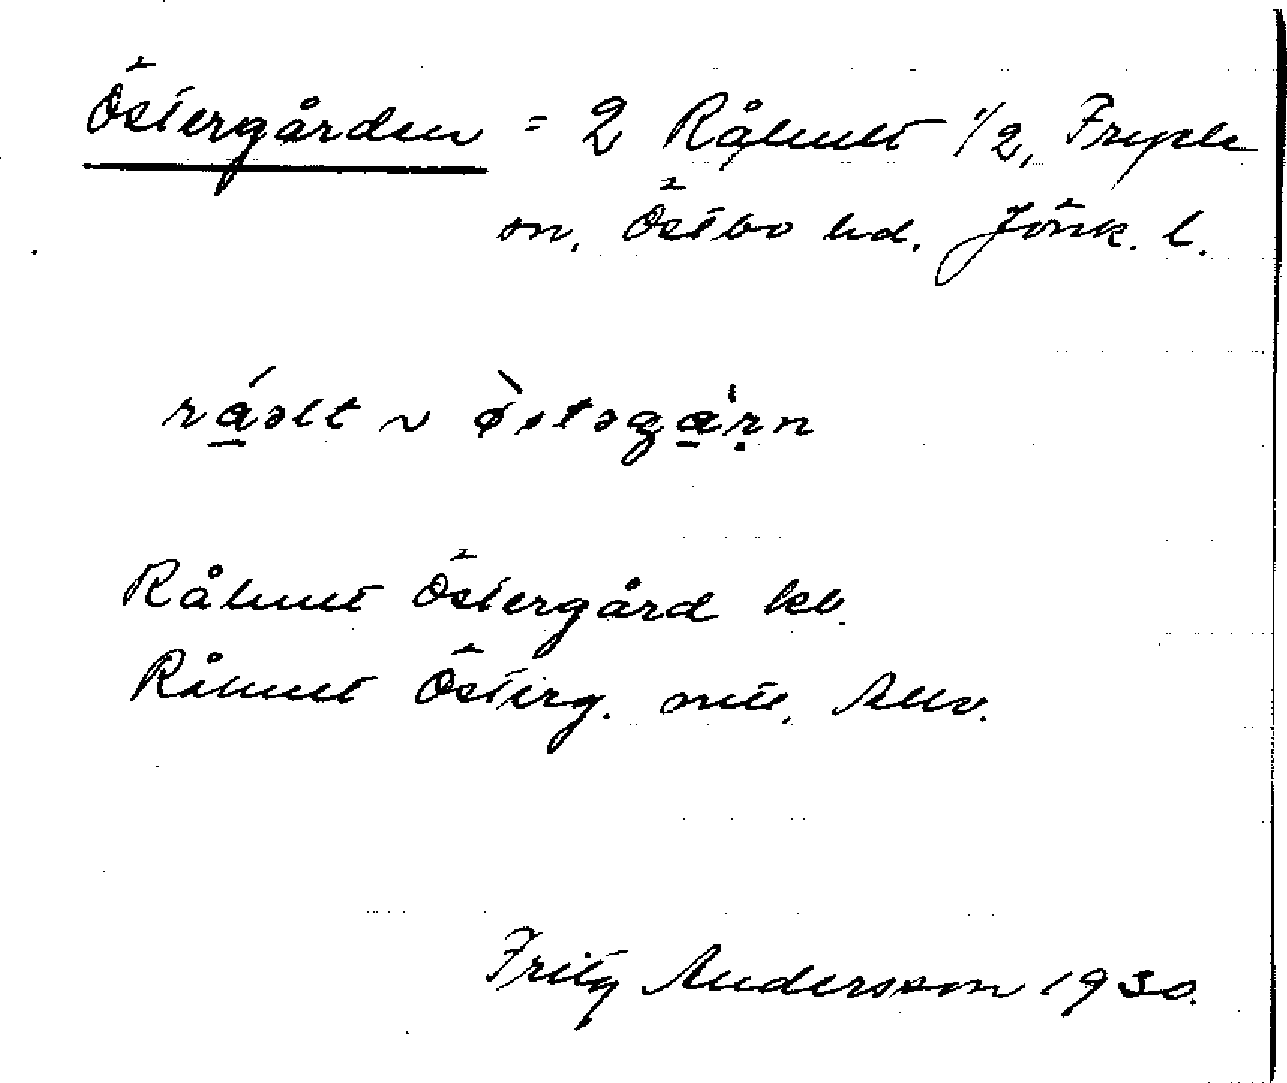 Östergården = 2 Råhult 1/2, Fryele
sn, Östbo hd. Jönk. l.
ráəlt ~ ø̀stəga̍ṛn
Råhult Östergård kb.
Råhult Österg. mtl.
Fritz Andersson 1930.